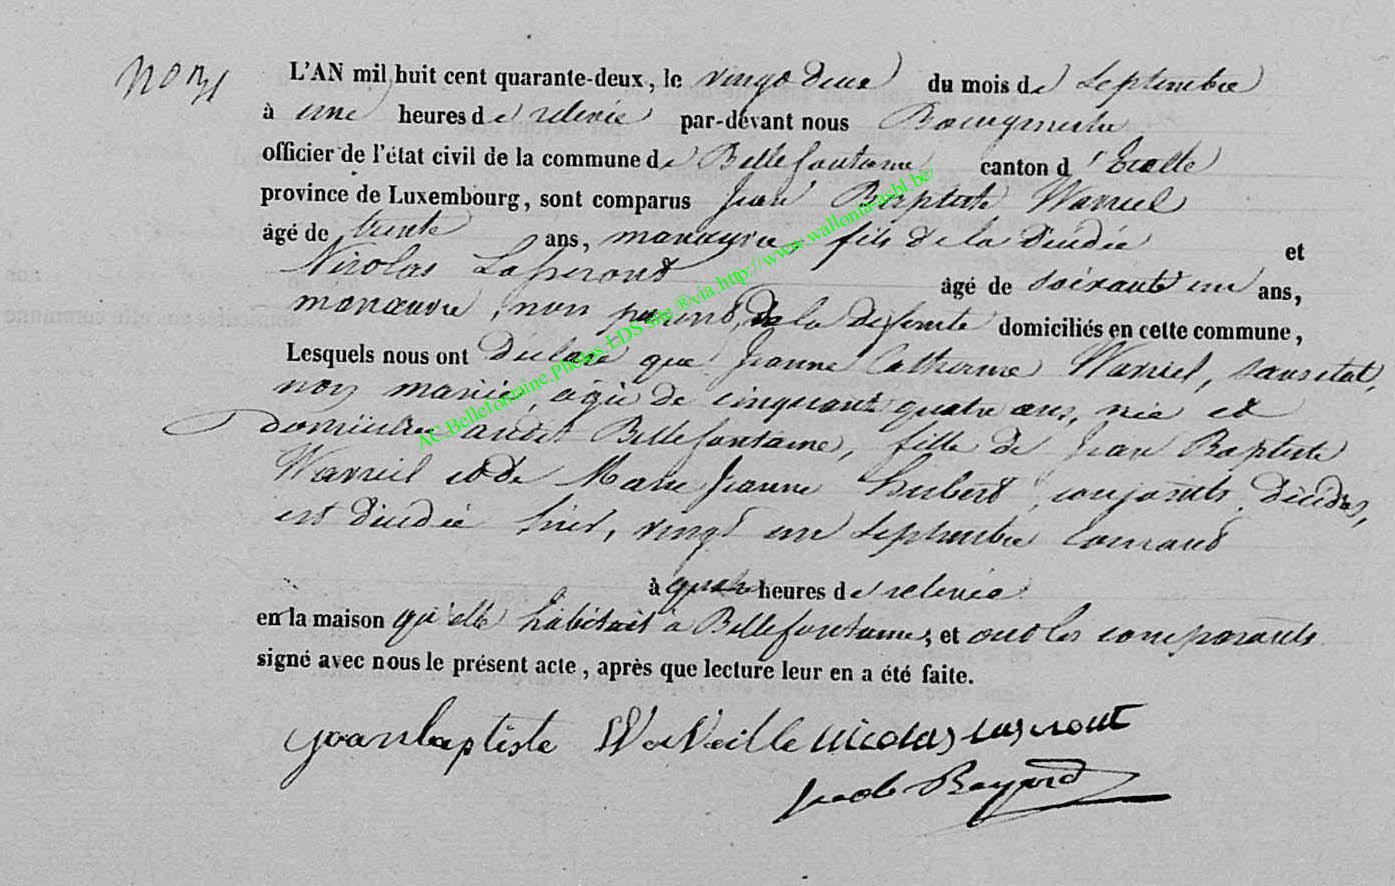 L'AN mil huit cent quarante-deux, le vingt deux du mois de Septembre
à une heures de relevée par-devant nous Bourgmestre
officier de l'état civil de la commune de Bellefontaine canton d'Etalle
province de Luxembourg, sont comparus Jean Baptiste
âgé de trente ans, manœuvre, fils de la décédée et
Nicolas âgé de soixante un ans,
manœuvre, non parent, de la défunte domiciliés en cette commune,
Lesquels nous ont déclaré que Jeanne Catherine sans état,
non mariée, agée de cinquante quatre ans, née et
domiciliée audit Bellefontaine, fille de Jean Baptiste
et de Marie Jeanne Hubert, conjoints, décédés,
est décédée hier, vingt un Septembre courant
à quatre heures de relevée
en la maison qu'elle habitait à Bellefontaine, et ont les comparants
signé avec nous le présent acte, après que lecture leur en a été faite.
jean baptiste nicolas
AC-Bellefontaine.Photos EDS site ®via http://www.wallonia-asbl.be/